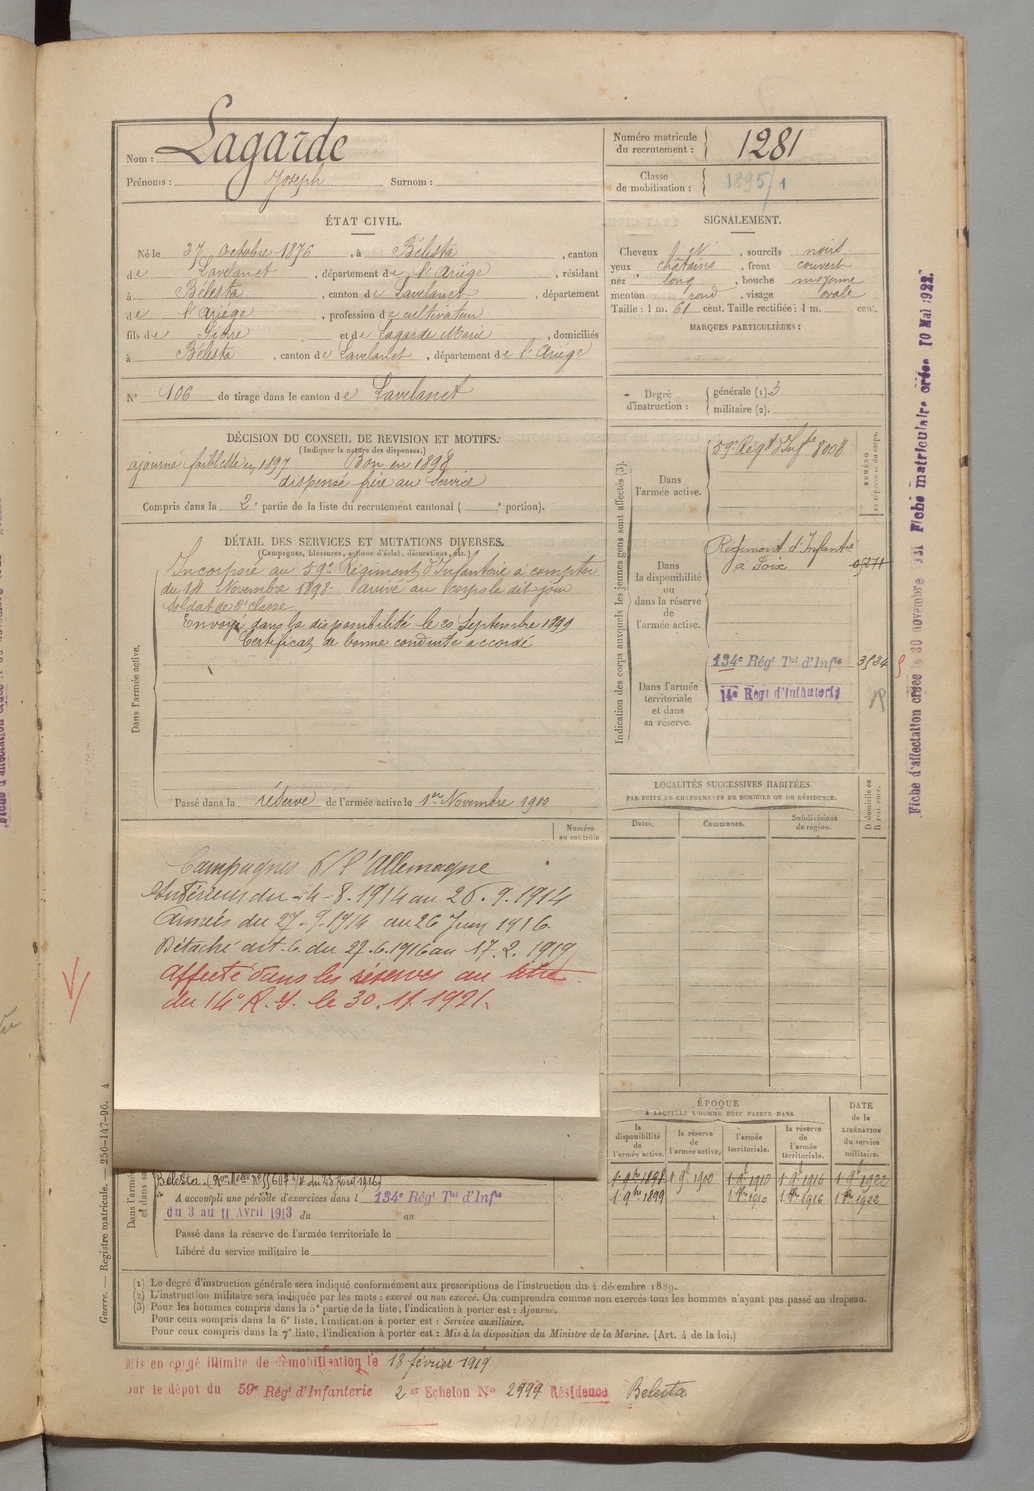 Nom : Lagarde
Prénoms : Joseph Surnom :
Numéro matricule du recrutement : 1281
Classe de mobilisation : 1895/1
ÉTAT CIVIL.
Né le 27 octobre 1876, à Bélesta, canton
de Lavelanet, département de l'Ariège, résidant
à Bélesta, canton de Lavelanet, département
de l'Ariège, profession de cultivateur
fils de Pierre et de Lagarde Marie, domiciliés
à Bélesta, canton de Lavelanet, département de l'Ariège
SIGNALEMENT.
Cheveux N, sourcils noirs
yeux châtains, front couvert
nez long, bouche moyenne
menton rond, visage ovale
Taille : 1 m. 61 cent. Taille rectifiée : 1 m. cent.
MARQUES PARTICULIÈRES :
N° 106 de tirage dans le canton de Lavelanet
Degré d'instruction : générale (1). 3
militaire (2).
DÉCISION DU CONSEIL DE REVISION ET MOTIFS.
(Indiquer la nature des dispenses.)
ajourné faiblesse en 1897 Bon en 1898
dispensé frère au service
Compris dans la 2e partie de la liste du recrutement cantonal ( e portion).
DÉTAIL DES SERVICES ET MUTATIONS DIVERSES.
(Campagnes, blessures, actions d'éclat, décorations, etc.)
Dans l'armée active.
Incorporé au 59e Régiment d'Infanterie à compter
du 14 Novembre 1898. Arrivé au corps le dit jour
soldat de 2e classe
Envoyé dans la disponibilité le 20 Septembre 1899
Certificat de bonne conduite accordé
Passé dans la réserve de l'armée active le 1er Novembre 1900
Indication des corps auxquels les jeunes gens sont affectés (3).
NUMÉRO au répertoire du corps.
Dans l'armée active. 59e Régt d'Infie 8008
Dans la disponibilité ou dans la réserve de l'armée active.
Régiment d'Infanterie
à Foix
Dans l'armée territoriale et dans sa réserve.
134e Régt Tal d'Infie
14e Regt d'Infanterie
LOCALITÉS SUCCESSIVES HABITÉES
PAR SUITE DE CHANGEMENTS DE DOMICILE OU DE RÉSIDENCE.
Dates. Communes. Subdivisions de région. D. domicile ou R. résidence.
Numéro au contrôle
Campagnes c/ l'Allemagne
Intérieur du 4-8-1914 au 26.9.1914
Armées du 27.9.1914 au 26 Juin 1916.
Détaché art. 6 du 27.6.1916 au 17.2.1919
Affecté dans les réserves au titre
du 14e R.I. le 30.11.1921.
ÉPOQUE
À LAQUELLE L'HOMME DOIT PASSER DANS
DATE de la LIBÉRATION du service militaire.
la disponibilité de l'armée active. la réserve de l'armée active. l'armée territoriale. la réserve de l'armée territoriale.
1 9bre 1898 1 9e 1900 1 9e 1910 1 9e 1916 1 9e 1922
1 9bre 1899 1 9bre 1910 1 9bre 1916 1 9bre 1922
Bélesta
A accompli une période d'exercices dans l 134e Régt Tal d'Infie
du 3 au 11 Avril 1913 du au
Passé dans la réserve de l'armée territoriale le
Libéré du service militaire le
(1) Le degré d'instruction générale sera indiqué conformément aux prescriptions de l'instruction du 4 décembre 1889.
(2) L'instruction militaire sera indiquée par les mots : exercé ou non exercé. On comprendra comme non exercés tous les hommes n'ayant pas passé au drapeau.
(3) Pour les hommes compris dans la 5e partie de la liste, l'indication à porter est : Ajourné.
Pour ceux compris dans la 6e liste, l'indication à porter est : Service auxiliaire.
Pour ceux compris dans la 7e liste, l'indication à porter est : Mis à la disposition du Ministre de la Marine. (Art. 4 de la loi.)
Mis en congé illimité de démobilisation le 18 février 1919
par le dépôt du 59e Régt d'Infanterie 2e Echelon N° 2999 Résidence Belesta
Guerre. — Registre matricule. — 256-147-96. 4
Fiche d'affectation créée le 30 novembre 1921 Fiche matriculaire créée 10 Mai 1922.